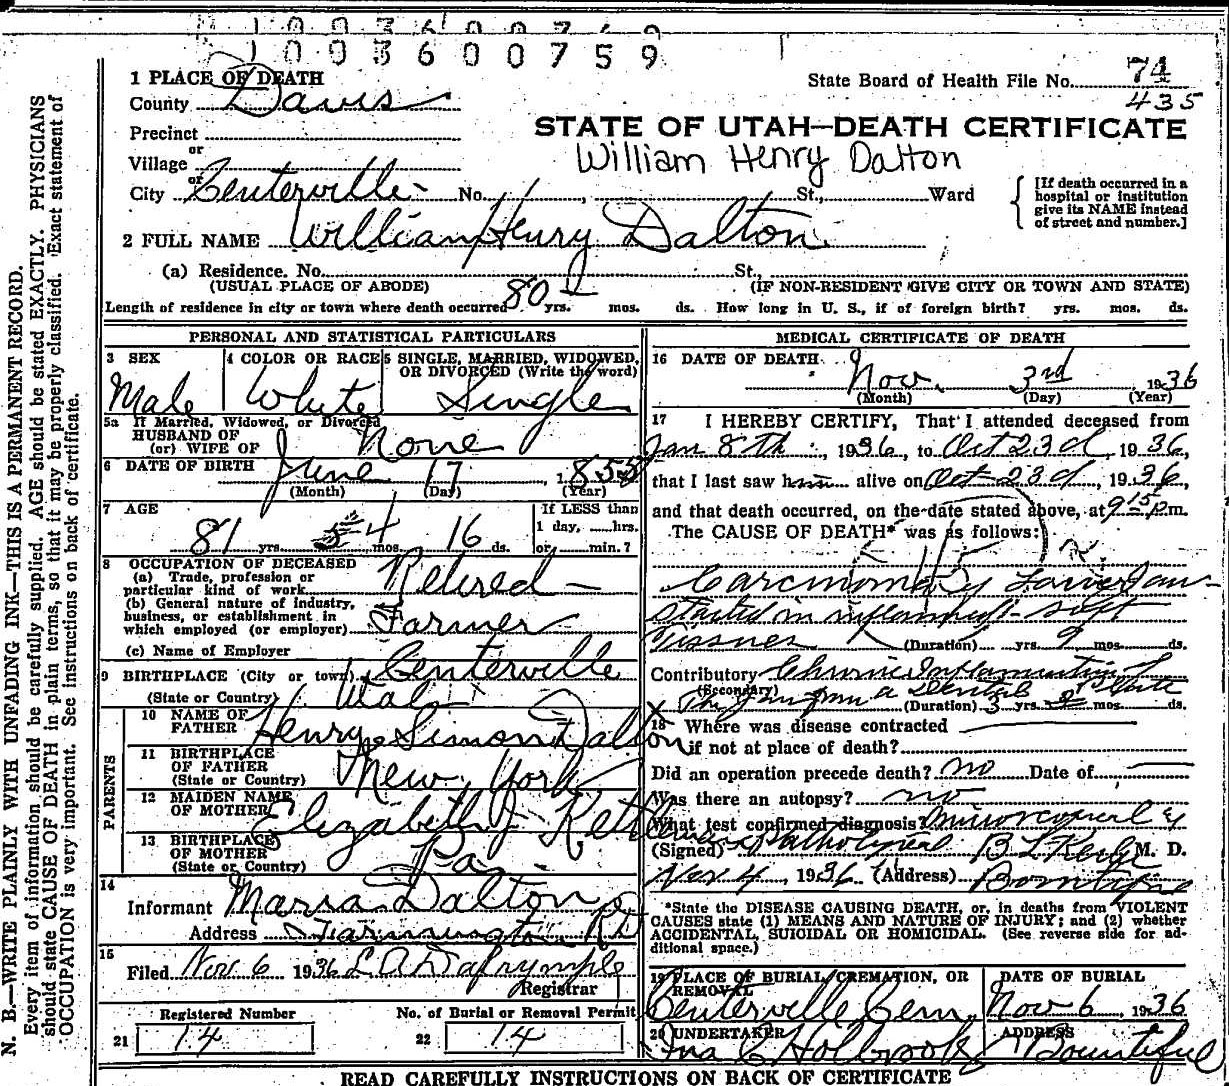 1003600759
1 PLACE OF DEATH
State Board of Health File No. 74
435
County Davis
STATE OF UTAH—DEATH CERTIFICATE
William Henry Dalton
Precinct
or
Village
or
City Centerville No. St., Ward
[If death occurred in a hospital or institution give its NAME instead of street and number.]
2 FULL NAME William Henry Dalton
(a) Residence. No. St.,
(USUAL PLACE OF ABODE) (IF NON-RESIDENT GIVE CITY OR TOWN AND STATE)
Length of residence in city or town where death occurred 80 yrs. mos. ds. How long in U. S., if of foreign birth? yrs. mos. ds.
PERSONAL AND STATISTICAL PARTICULARS
3 SEX
Male
4 COLOR OR RACE
White
5 SINGLE, MARRIED, WIDOWED, OR DIVORCED (Write the word)
Single
5a If Married, Widowed, or Divorced
HUSBAND OF
(or) WIFE OF None
6 DATE OF BIRTH June 17, 1855
(Month) (Day) (Year)
7 AGE
81 yrs. 4 mos. 16 ds.
If LESS than
1 day, hrs.
or min.?
8 OCCUPATION OF DECEASED
(a) Trade, profession or
particular kind of work Retired
(b) General nature of industry,
business, or establishment in
which employed (or employer) Farmer
(c) Name of Employer
9 BIRTHPLACE (City or town) Centerville
(State or Country) Utah
PARENTS
10 NAME OF
FATHER Henry Simon Dalton
11 BIRTHPLACE
OF FATHER
(State or Country) New York
12 MAIDEN NAME
OF MOTHER Elizabeth J
13 BIRTHPLACE
OF MOTHER
(State or Country) Pa
14
Informant Maria Dalton
Address Farmington
15
Filed Nov 6 1936 L. A. Dalrymple
Registrar
Registered Number
21 14
No. of Burial or Removal Permit
22 14
MEDICAL CERTIFICATE OF DEATH
16 DATE OF DEATH
Nov. 3rd, 1936
(Month) (Day) (Year)
17 I HEREBY CERTIFY, That I attended deceased from
Jan 8th, 1936, to Oct 23d, 1936,
that I last saw him alive on Oct 23d, 1936,
and that death occurred, on the date stated above, at 9 15 p.m.
The CAUSE OF DEATH* was as follows:
Carcinoma Lower Jaw
started in soft
Tissues (Duration) yrs. 9 mos. ds.
Contributory Chronic
(Secondary) a Dental Plate
(Duration) 3 yrs. mos. ds.
18 Where was disease contracted
if not at place of death?
Did an operation precede death? no Date of
Was there an autopsy? no
What test confirmed diagnosis?
(Signed) M. D.
Nov 4, 1936 (Address) Bountiful
*State the DISEASE CAUSING DEATH, or, in deaths from VIOLENT
CAUSES state (1) MEANS AND NATURE OF INJURY; and (2) whether
ACCIDENTAL, SUICIDAL OR HOMICIDAL. (See reverse side for ad-
ditional space.)
19 PLACE OF BURIAL, CREMATION, OR
REMOVAL
Centerville Cem.
DATE OF BURIAL
Nov 6, 1936
20 UNDERTAKER
Holbrook
ADDRESS
Bountiful
READ CAREFULLY INSTRUCTIONS ON BACK OF CERTIFICATE
N. B.—WRITE PLAINLY WITH UNFADING INK—THIS IS A PERMANENT RECORD.
Every item of information should be carefully supplied. AGE should be stated EXACTLY. PHYSICIANS
should state CAUSE OF DEATH in plain terms, so that it may be properly classified. Exact statement of
OCCUPATION is very important. See instructions on back of certificate.